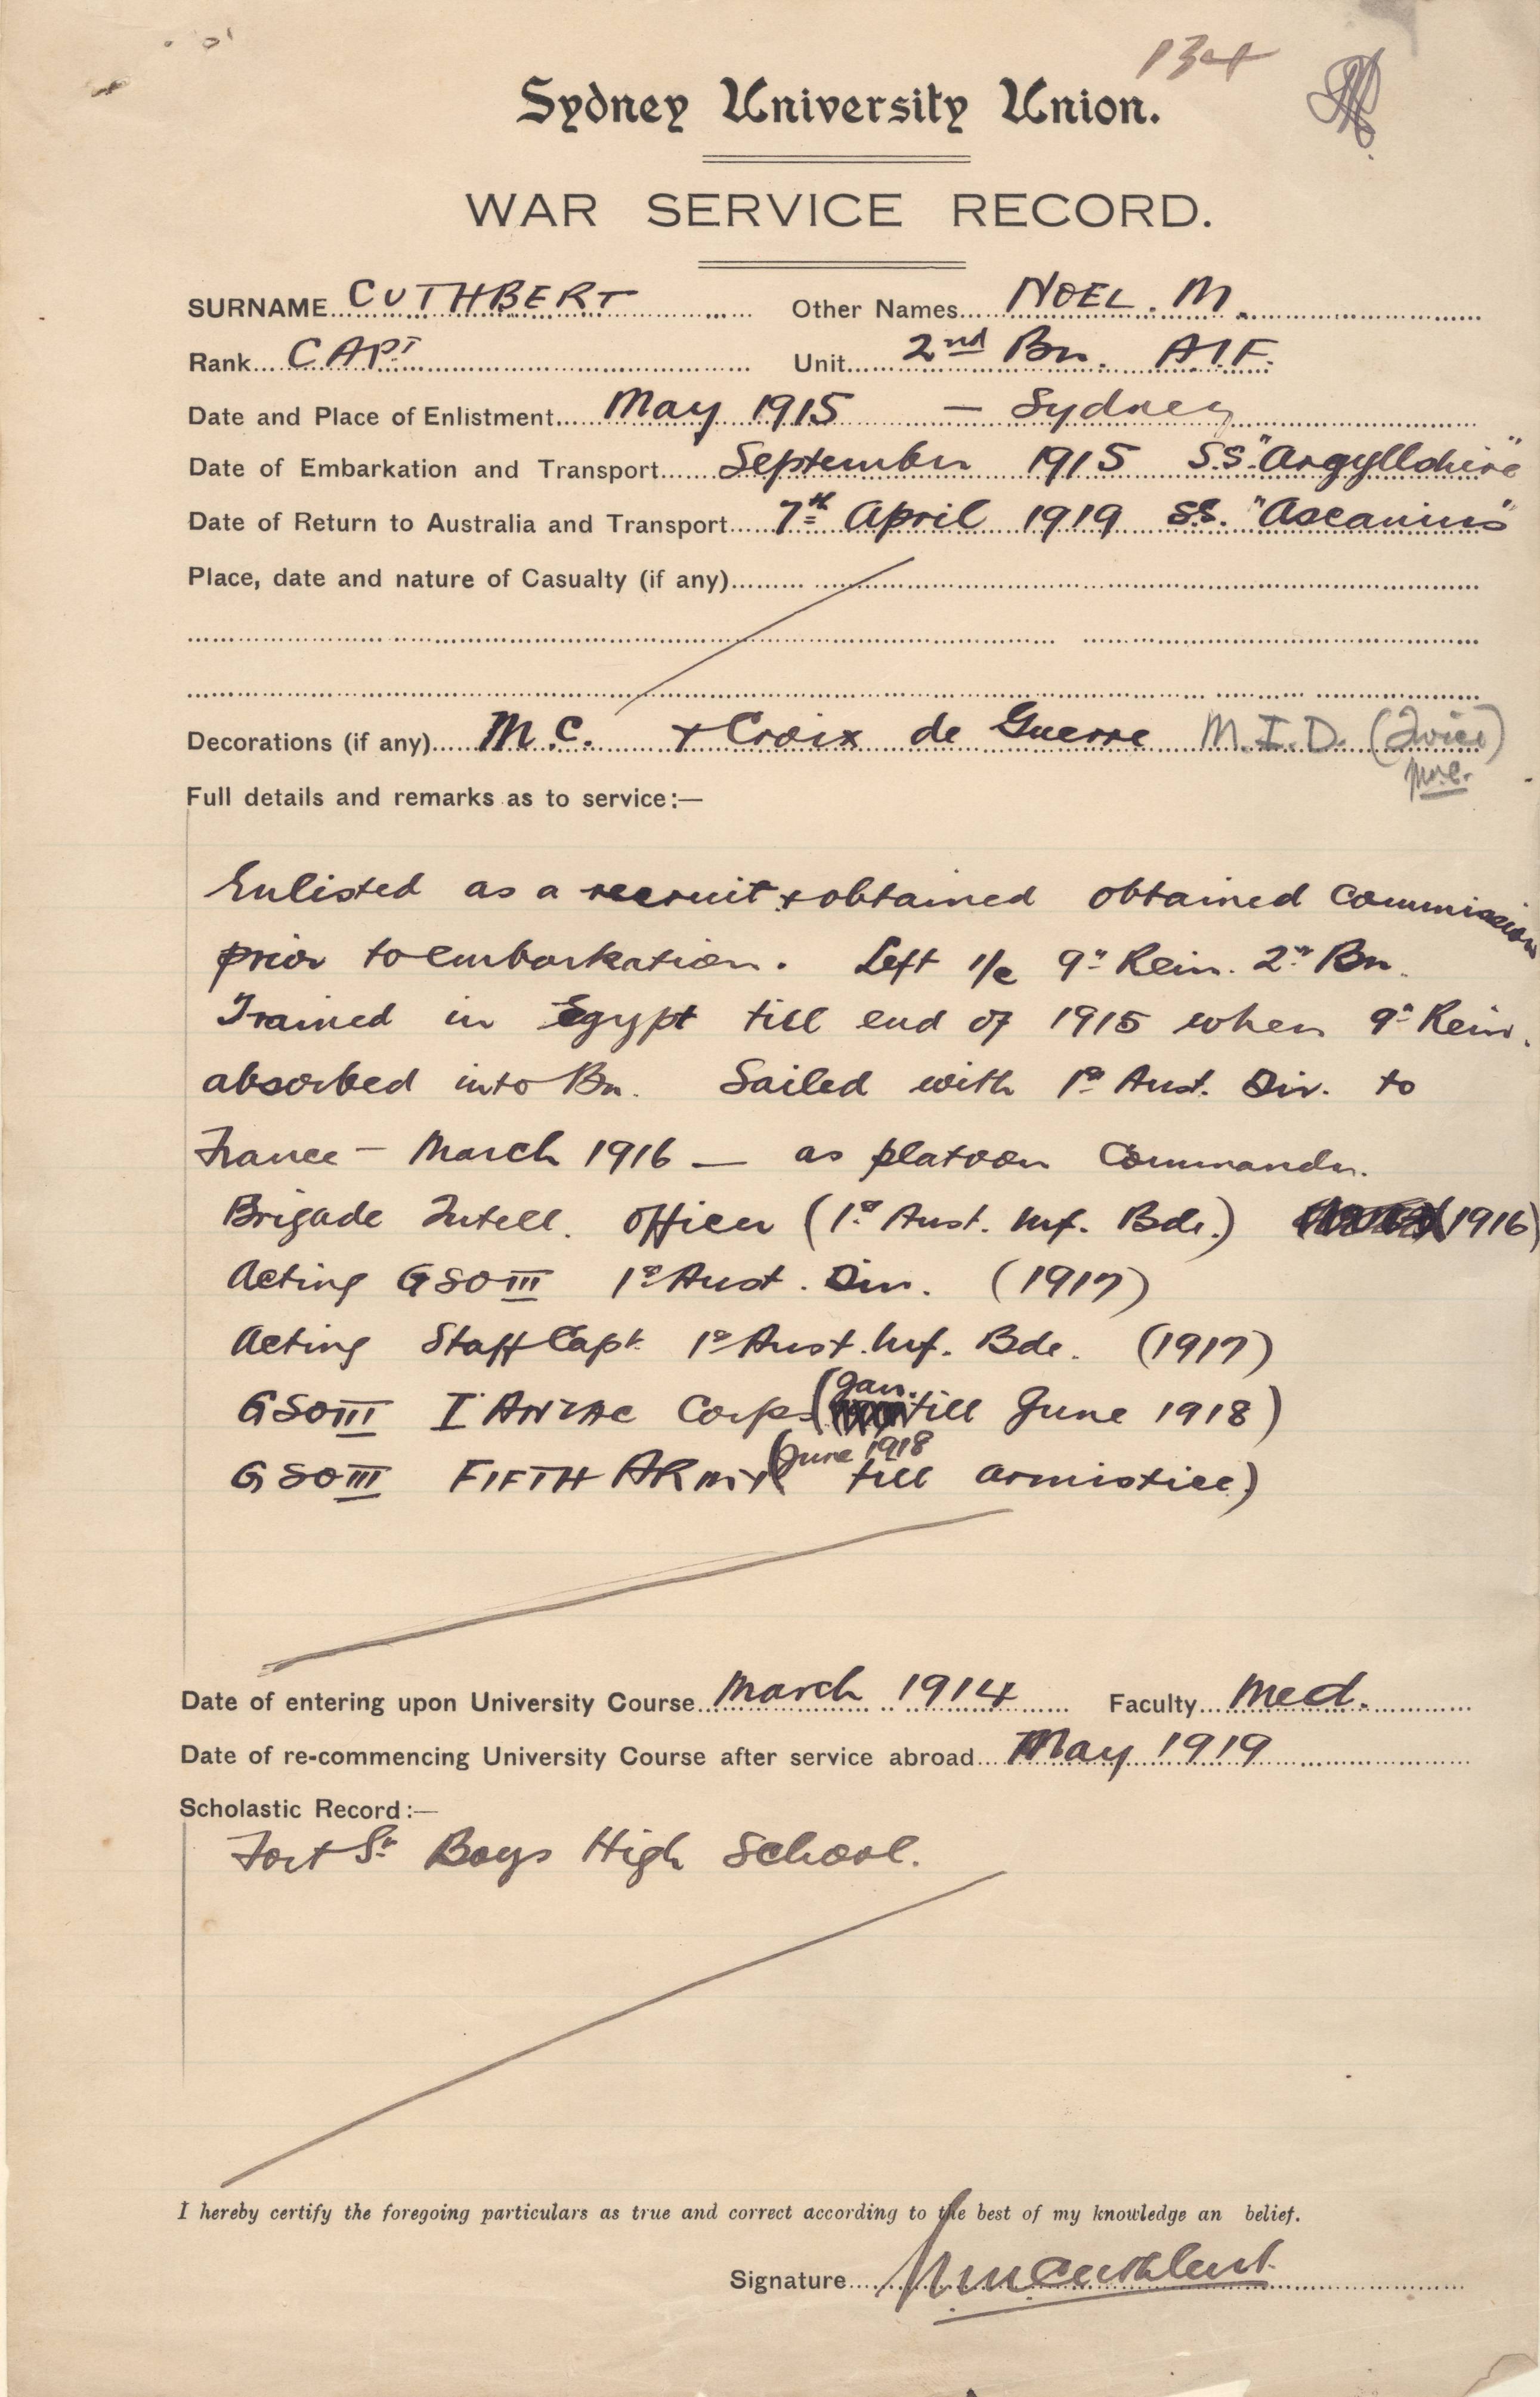 134
Sydney University Union.
WAR SERVICE RECORD.
SURNAME CUTHBERT Other Names NOEL. M.
Rank CAPT Unit 2nd Bn. A.I.F.
Date and Place of Enlistment May 1915 — Sydney
Date of Embarkation and Transport September 1915 S.S. "Argyllshire"
Date of Return to Australia and Transport 7th April 1919 S.S. "Ascanius"
Place, date and nature of Casualty (if any)
Decorations (if any) M.C. + Croix de Guerre M.I.D. (Twice)
Full details and remarks as to service:—
Enlisted as a recruit + obtained obtained commission
prior to embarkation. Left i/c 9th Rein. 2nd Bn.
Trained in Egypt till end of 1915 when 9th Rein.
absorbed into Bn. Sailed with 1st Aust. Div. to
France — March 1916 — as platoon Commander.
Brigade Intell. Officer (1st Aust. Inf. Bde.) 1916)
Acting GSO III 1st Aust. Div. (1917)
Acting Staff Capt. 1st Aust. Inf. Bde. (1917)
GSO III I ANZAC Corps (Jan. till June 1918)
GSO III FIFTH ARMY (June 1918 till armistice)
Date of entering upon University Course March 1914 Faculty Med.
Date of re-commencing University Course after service abroad May 1919
Scholastic Record:—
Fort St. Boys High School.
I hereby certify the foregoing particulars as true and correct according to the best of my knowledge an belief.
Signature NMCuthbert